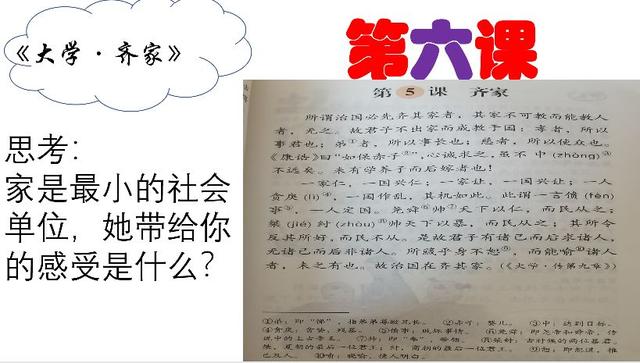 《大学·齐家》
第六课
思考：
家是最小的社会
单位，她带给你
的感受是什么？
第 5 课 齐家
所谓治国必先齐其家者，其家不可教而能教人
者，无之。故君子不出家而成教于国：孝者，所以
事君也；弟①者，所以事长也；慈者，所以使众也。
《康诰》曰“如保赤子②”，心诚求之，虽不中(zhòng)③
不远矣。未有学养子而后嫁者也！
一家仁，一国兴仁；一家让，一国兴让；一人
贪戾(lì)④，一国作乱，其机如此。此谓一言偾(fèn)
事⑤，一人定国。尧舜⑥帅⑦天下以仁，而民从之；
桀(jié)纣(zhòu)⑧帅天下以暴，而民从之；其所令
反其所好，而民不从。是故君子有诸己而后求诸人，
无诸己而后非诸人。所藏乎身不恕⑨，而能喻⑩诸人
者，未之有也。故治国在齐其家。(《大学·传第九章》)
①弟：即“悌”，指弟弟尊敬兄长。②赤子：婴儿。③中：达到目标。